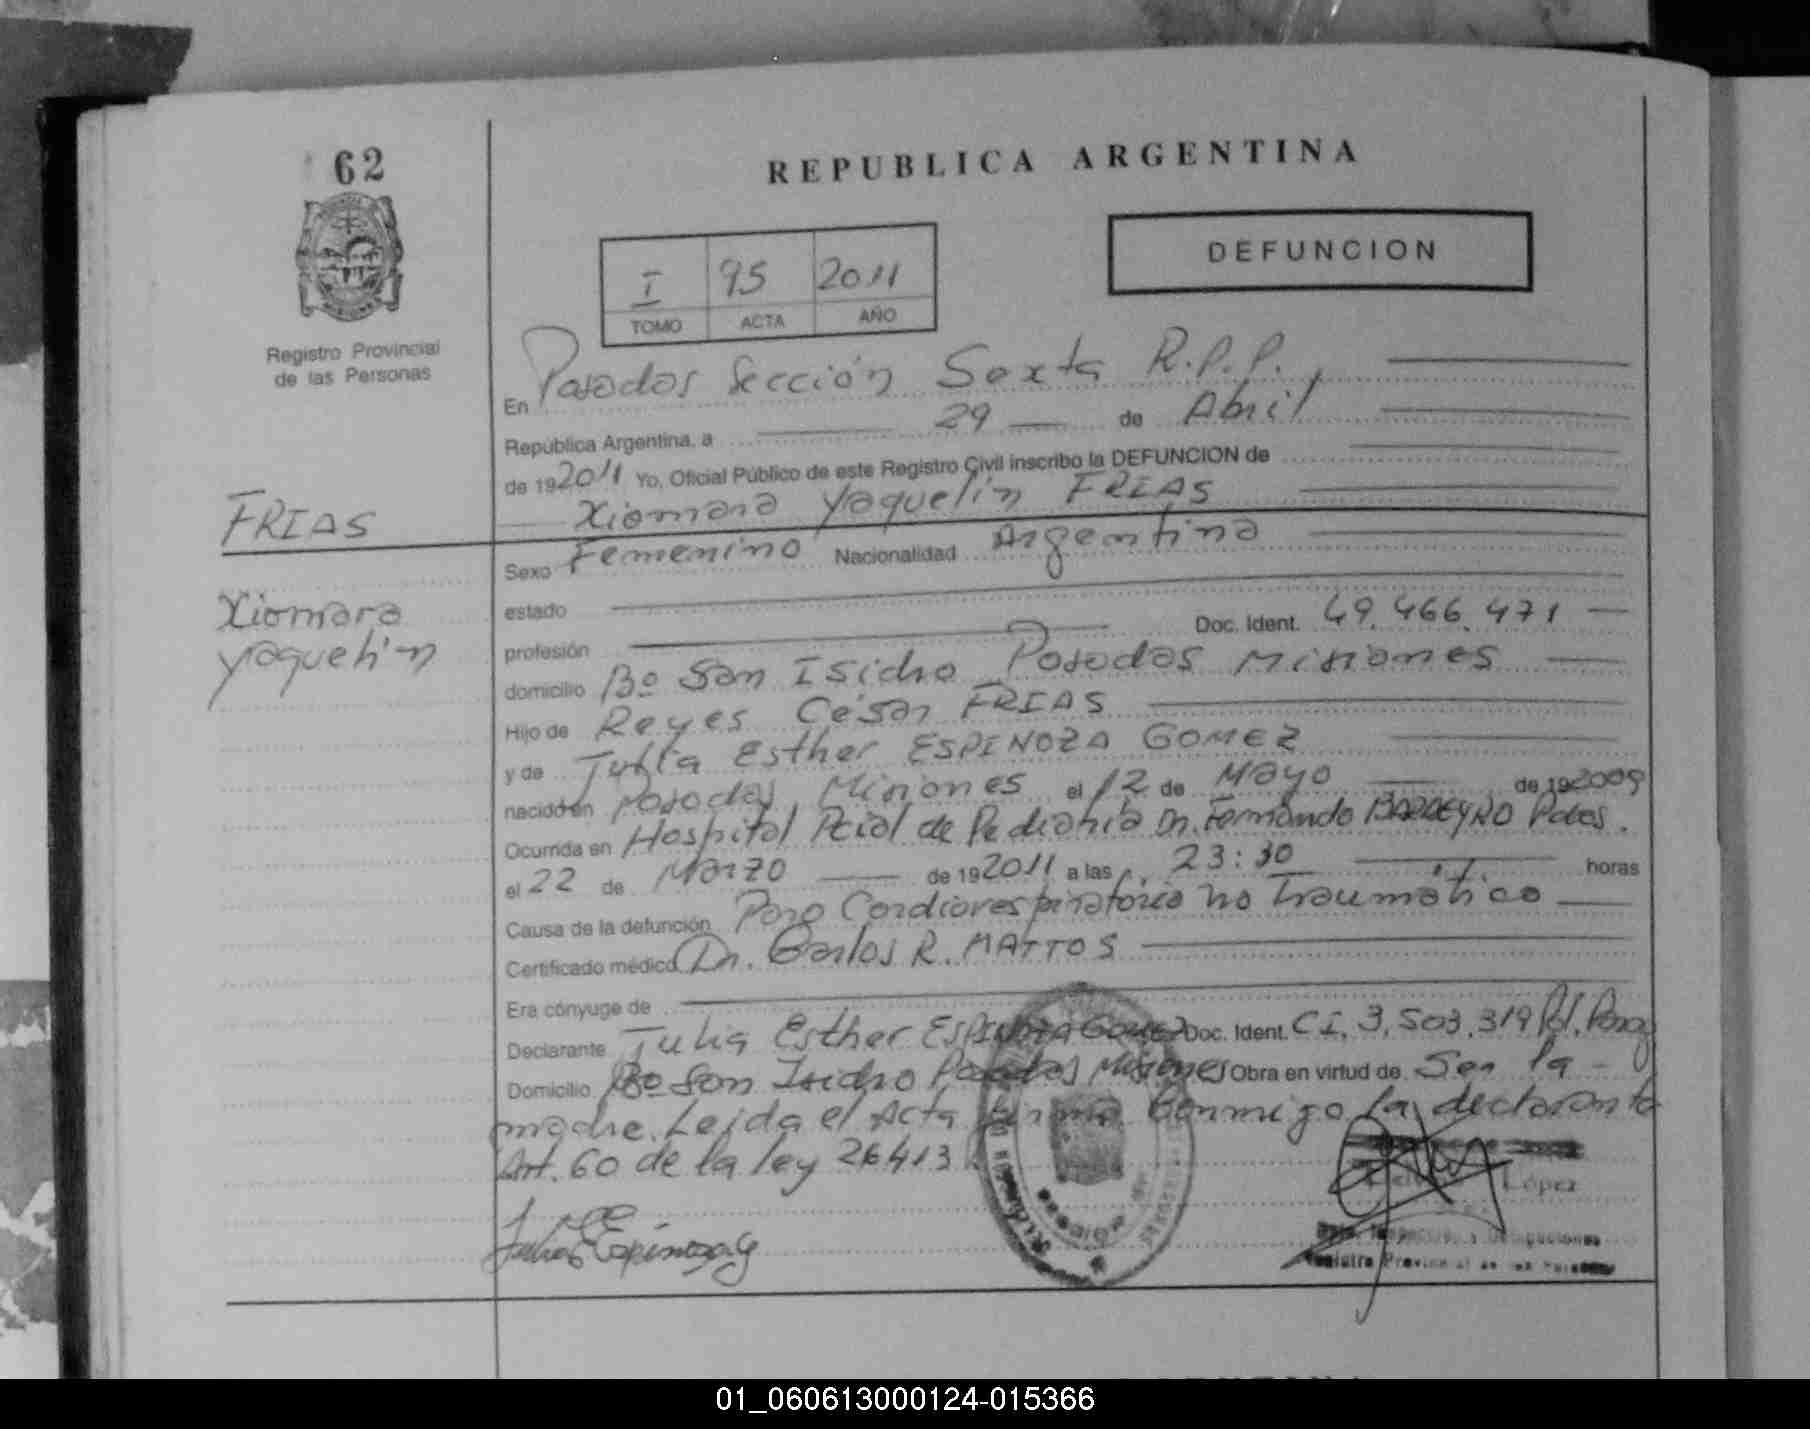 62
REPUBLICA ARGENTINA
DEFUNCION
I 95 2011
TOMO ACTA AÑO
Registro Provincial
de las Personas
En Posadas Sección Sexta R.P.P.,
República Argentina, a 29 de Abril
de 192011 Yo, Oficial Público de este Registro Civil inscribo la DEFUNCION de
Xiomara Yaquelin FRIAS
FRIAS
Xiomara
Yaquelin
Sexo Femenino Nacionalidad Argentina
estado
profesión Doc. Ident. 49.466.471
domicilio Bº San Isidro Posadas Misiones
Hijo de Reyes César FRIAS
y de Julia Esther ESPINOZA GOMEZ
nacido en Posadas Misiones el 12 de Mayo de 192009
Ocurrida en Hospital Pcial de Pediatría Dr. Fernando BARREYRO Pdas.
el 22 de Marzo de 192011 a las 23:30 horas
Causa de la defunción Paro Cardiorespiratorio no Traumático
Certificado médico Dr. Carlos R. MATTOS
Era cónyuge de
Declarante Julia Esther ESPINOZA GOMEZ Doc. Ident. C.I. 3.503.319 Pol. Parag
Domicilio Bº San Isidro Posadas Misiones Obra en virtud de Ser la
madre. Leida el Acta firma conmigo la declarante
Art. 60 de la ley 26413
Julia E Espinoza G
López
Registro Provincial de las Personas
01_060613000124-015366